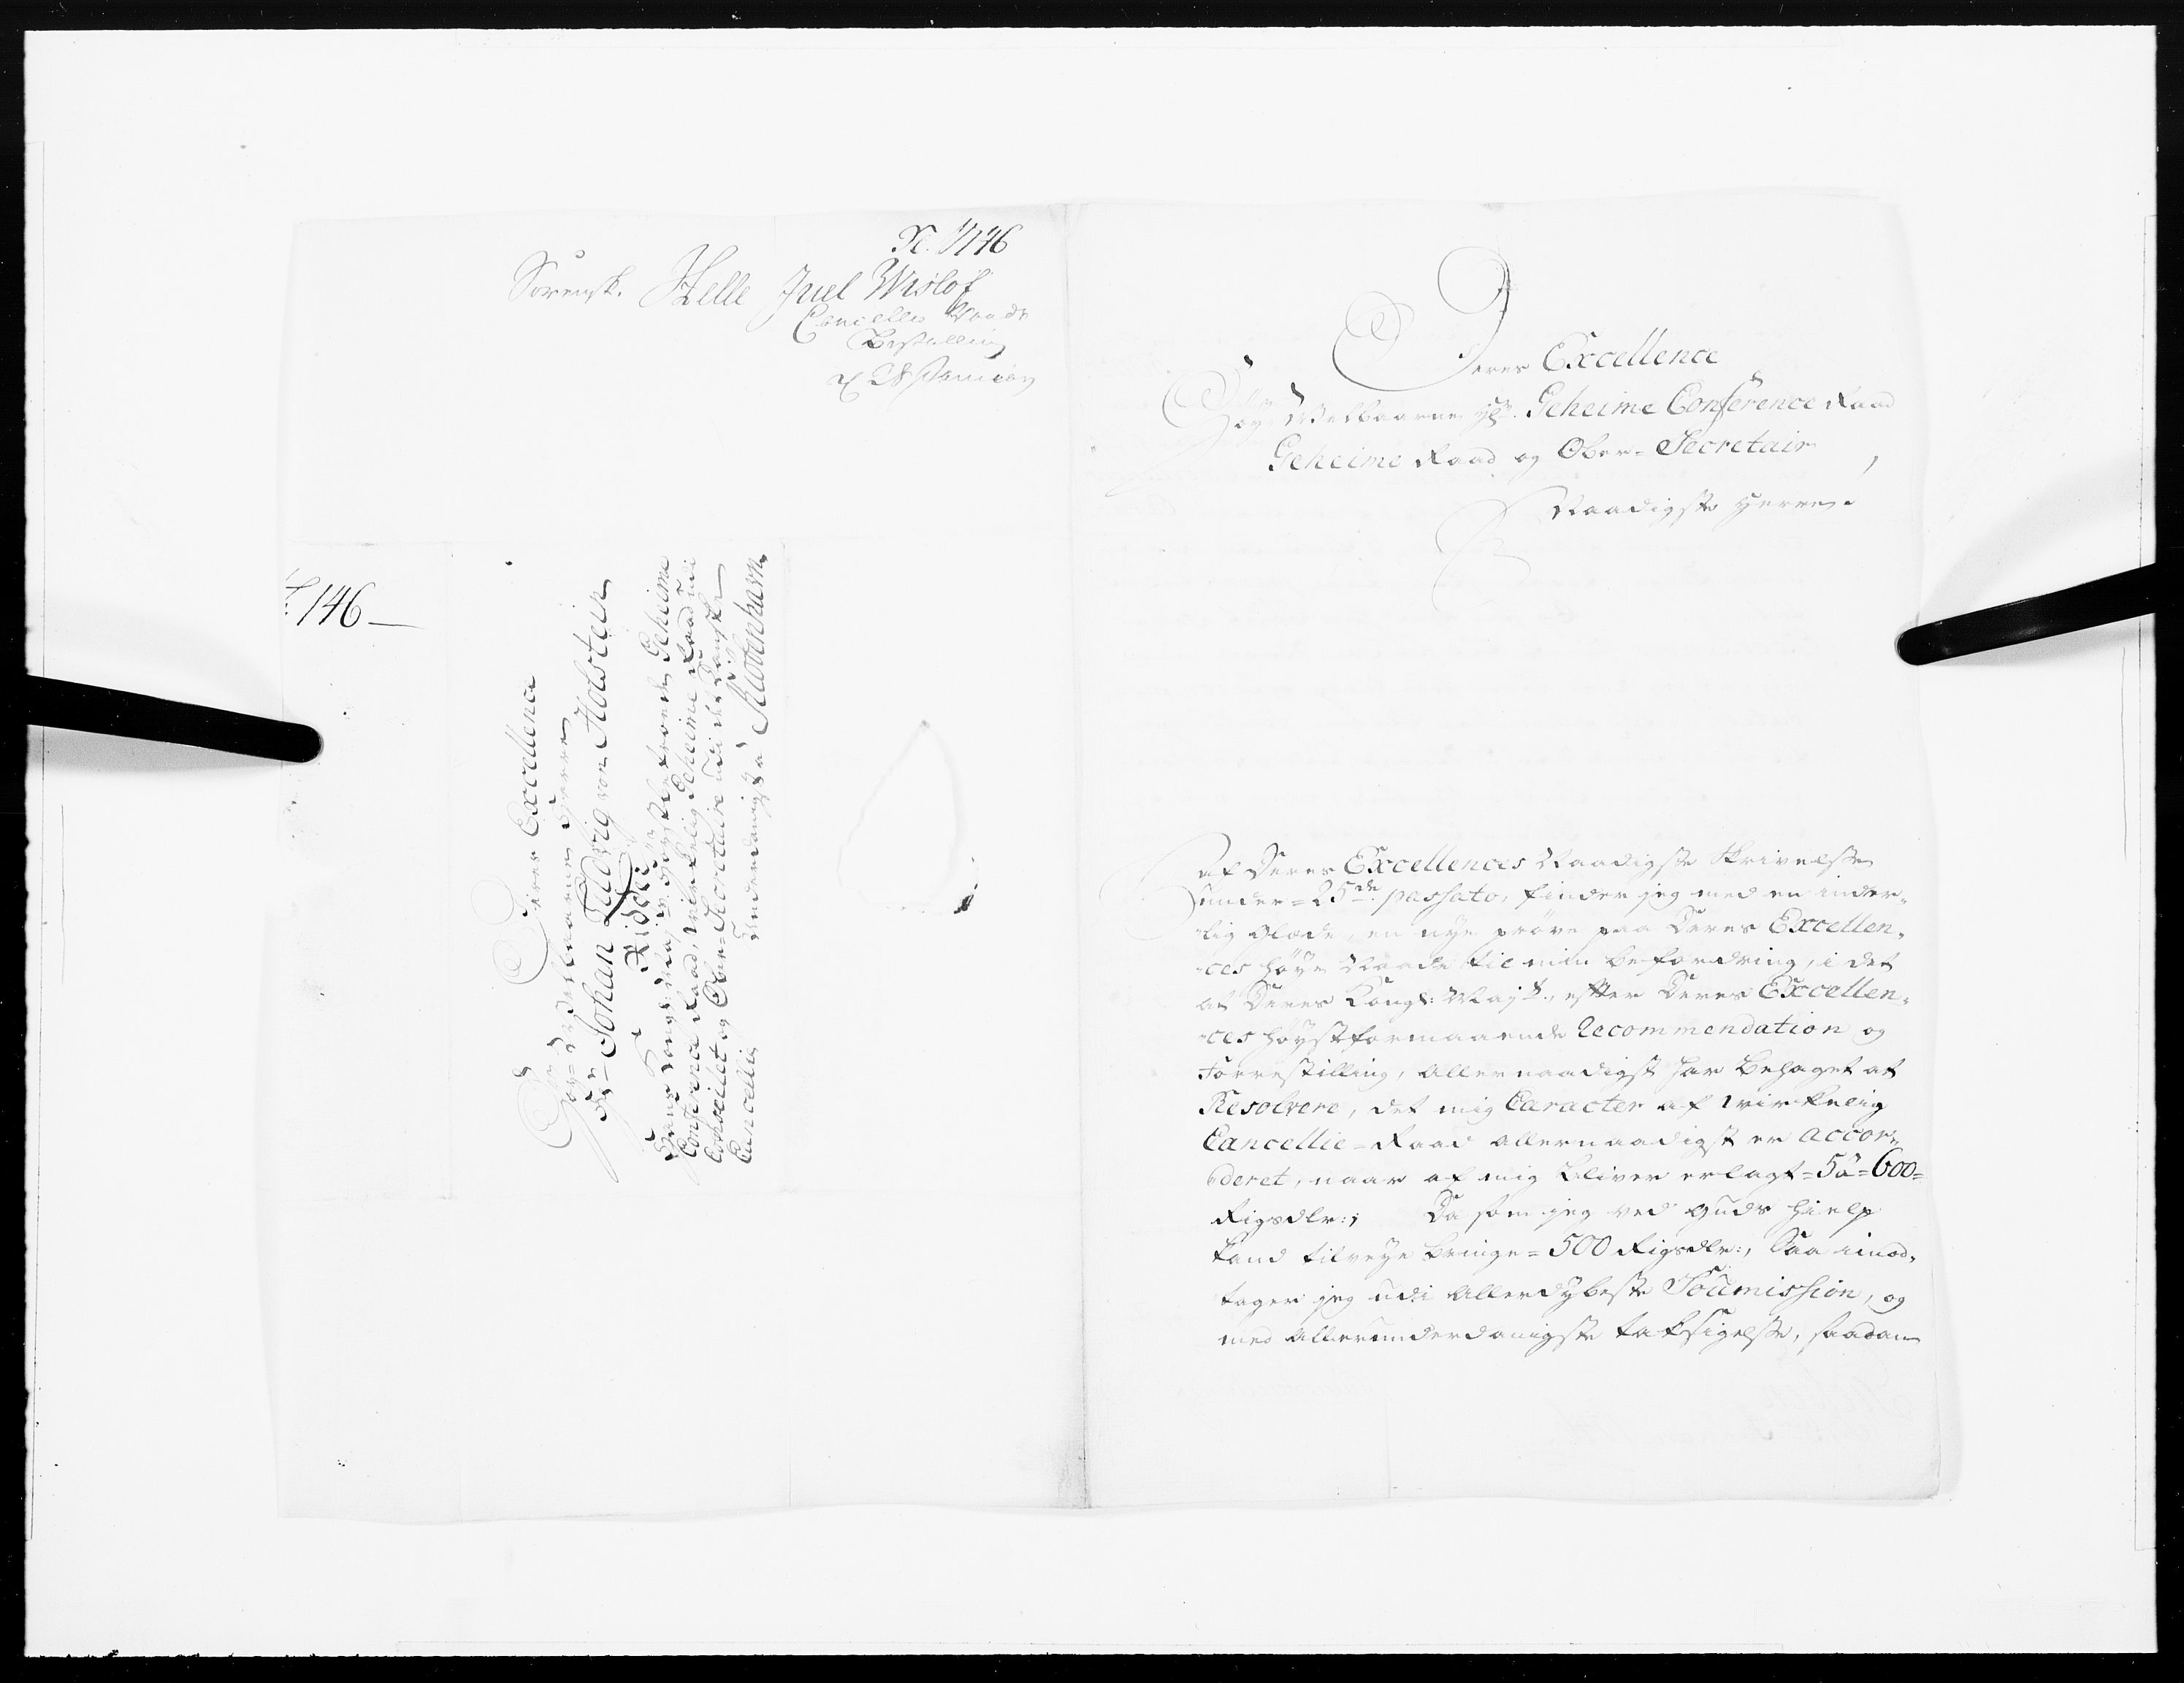 N. 1146
Sorensk. Helle Juel Wislof
Cancellie Raads
Bestalling
d 28 Januarij
146
Deres Excellence
Høy-Velbaarne Herre
Hr. Johan Ludvig von Holstein
Ridder
Hans Kongl: Mayst: Høystbetroede Geheime
Conference Raad, virkelig Geheime Raad udi
Conseillet og Ober-Secretaire udi det Danske
Cancellie
Underdanigst a Kiøbenhavn
Deres Excellence
Høy-Velbaarne Hr. Geheime Conference Raad
Geheime Raad og Ober-Secretair,
Naadigste Herre
Af Deres Excellences Naadigste Skrivelse
under = 25de passato, finder jeg med en inder-
-lig Glæde, en nye prøve paa Deres Excellen-
-ces høye Naade til min befordring, i det
at Deres Kongl: Mayst., efter Deres Excellen-
-ces høystformaaende Recommendation og
Forrestilling, allernaadigst har behaget at
Resolvere, det mig Caracter af virkelig
Cancellie-Raad allernaadigst er accor-
-deret, naar af mig bliver erlagt = 5 a = 600 =
Rigsdlr:; Da som jeg ved Guds hielp
kand tilveye bringe = 500 Rigsdlr:, Saa imod-
tager jeg udi allerdybeste Soumission, og
med allerunderdanigste taksigelse, saadan